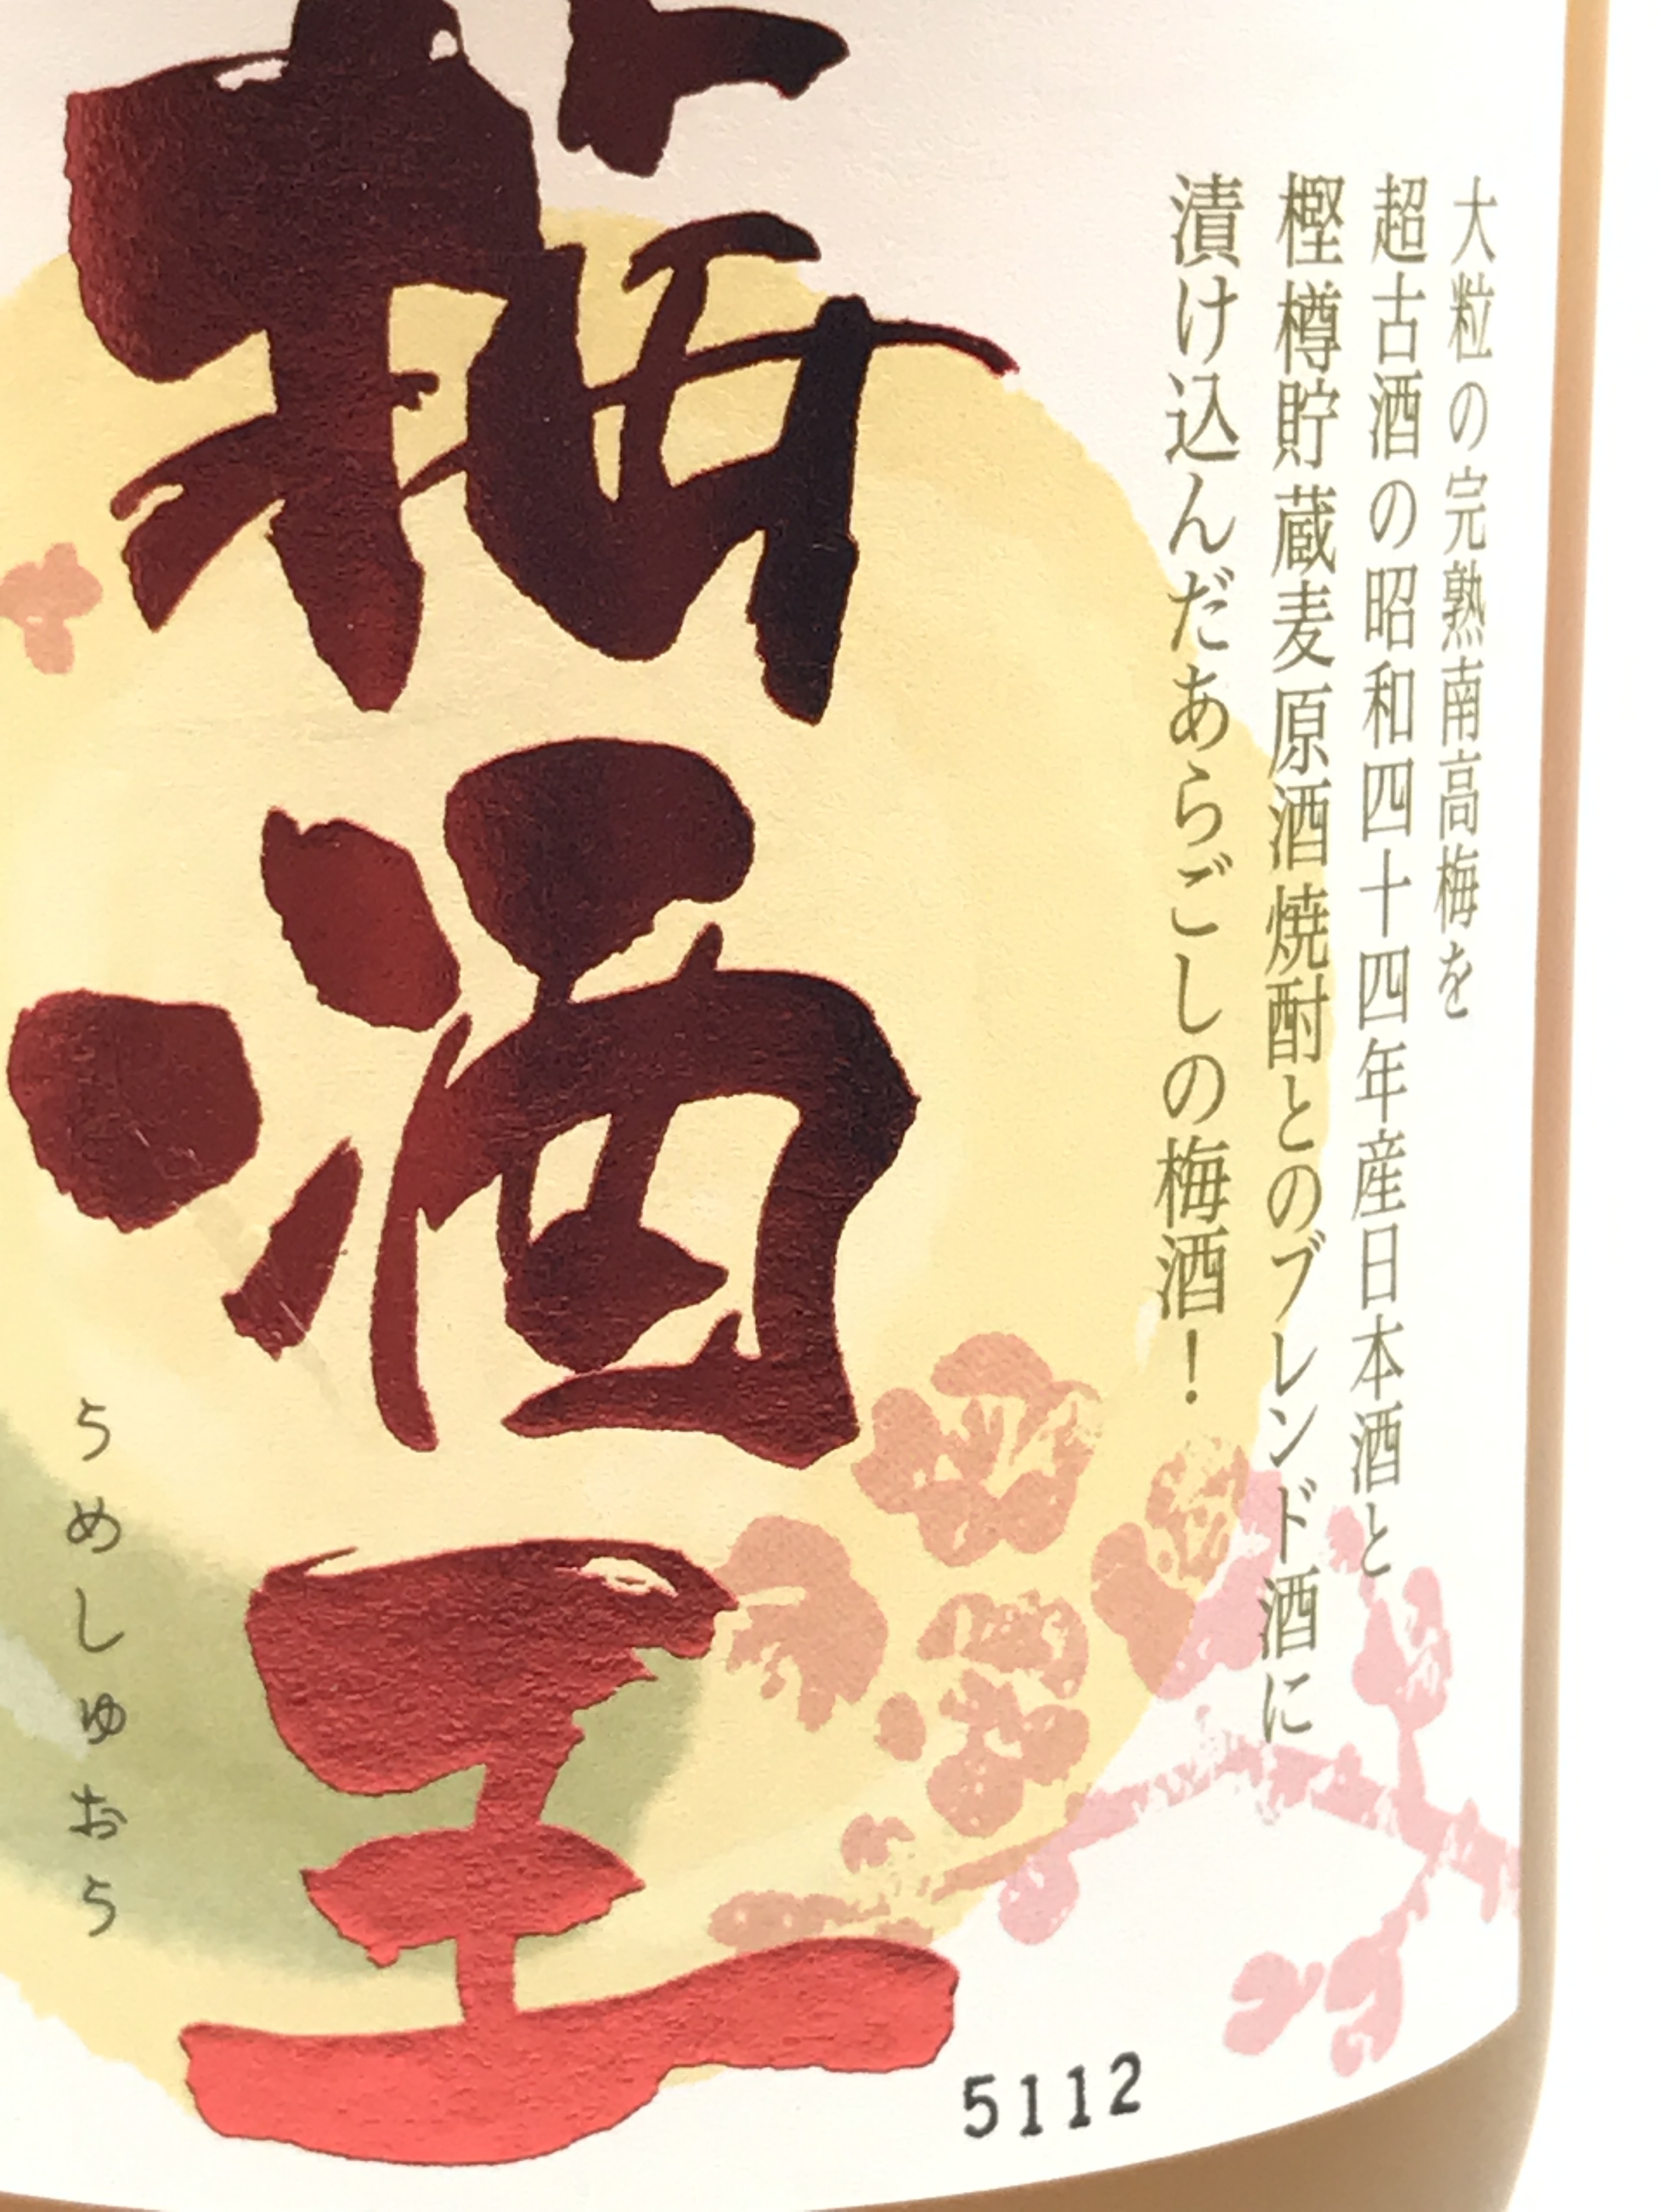 大粒の完熟南高梅を
超古酒の昭和四十四年産日本酒と
樫樽貯蔵麦原酒焼酎とのブレンド酒に
漬け込んだあらごしの梅酒！
梅酒王
うめしゅおう
5112